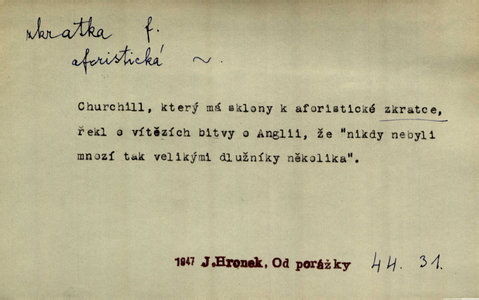 zkratka f.
aforistická ~.
Churchill, který má sklony k aforistické zkratce,
řekl o vítězích bitvy o Anglii, že "nikdy nebyli
mnozí tak velikými dlužníky několika".
1947 J.Hronek, Od porážky 44. 31.